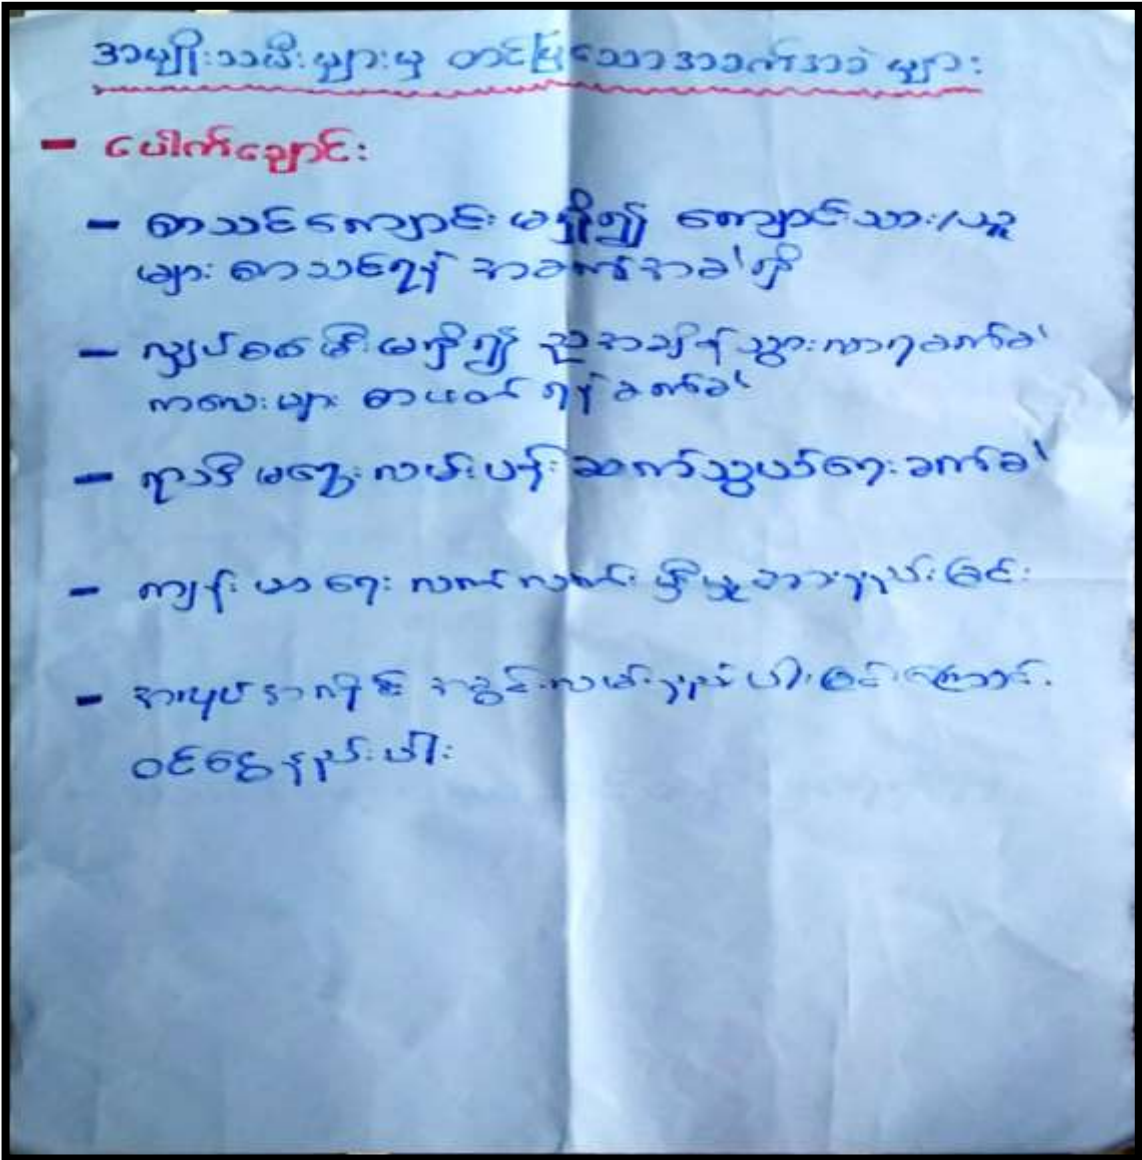 အမျိုးသမီးများမှ တင်ပြသောအခက်အခဲများ
- ပေါက်ချောင်း
- စာသင်ကျောင်း မရှိ၍ ကျောင်းသား/သူ
များ စာသင်ရန် အခက်အခဲရှိ
- လျှပ်စစ်မီး မရှိ၍ ညအချိန် သွားလာရခက်ခဲ
ကလေးများ စာဖတ်ရန် ခက်ခဲ
- ရာသီမရွေး လမ်းပန်း ဆက်သွယ်ရေး ခက်ခဲ
- ကျန်းမာရေး လက်လှမ်းမှီမှု အားနည်းခြင်း
- အလုပ်အကိုင် အခွင့်လမ်းနည်းပါးခြင်းကြောင့်
ဝင်ငွေနည်းပါး